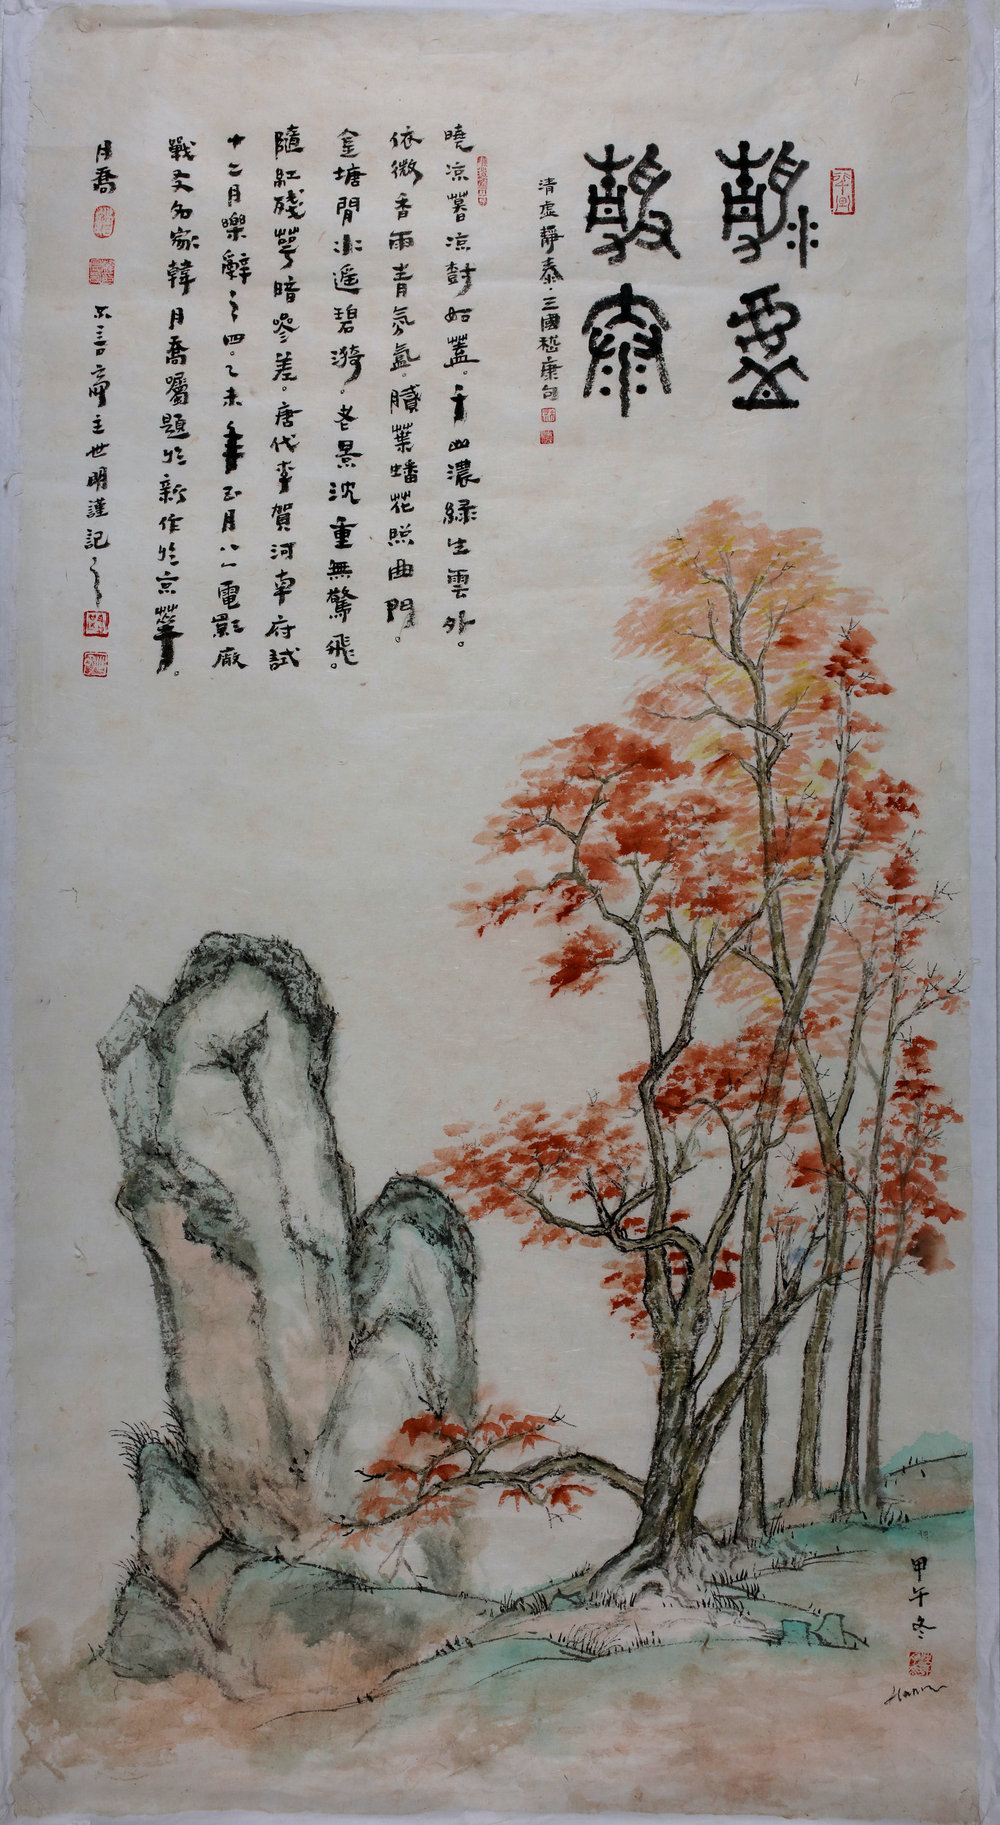 清虛
靜泰
清虛靜泰.三國嵇康句
曉凉暮凉尌如蓋。千山濃緑生雲外。
依微香雨青氛氳。膩葉蟠花照曲門。
金塘閒水遥碧漪。老景沈重無驚飛。
隨紅殘萼暗參差。唐代李賀河南府試
十二月樂辭之四。乙未年正月八一電影廠
戰友名家韓月喬囑題於新作於京華。
月喬 不言齋主世明謹記之
甲午冬